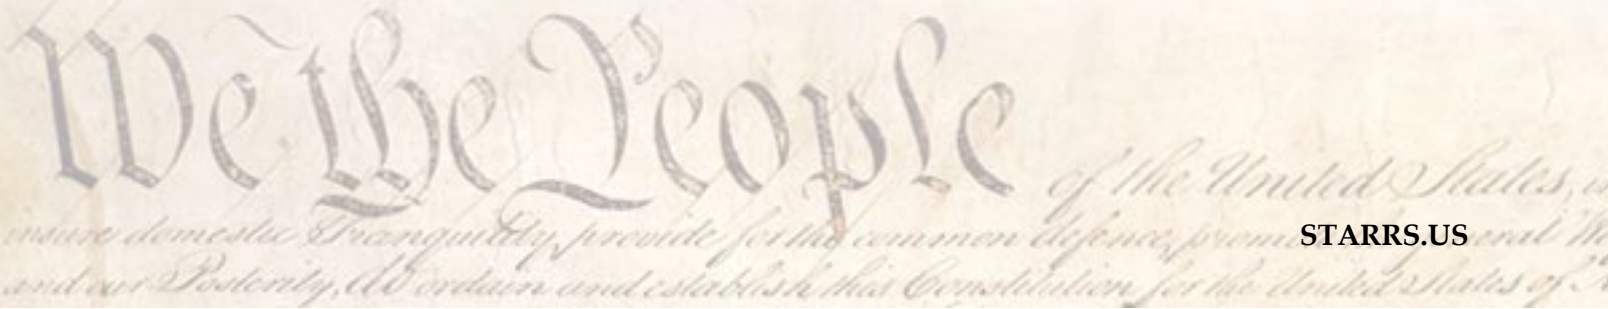 We the People of the United States,
insure domestic Tranquility, provide for the common defence, promo
STARRS.US
eral We
and our Posterity, do ordain and establish this Constitution for the United States of A